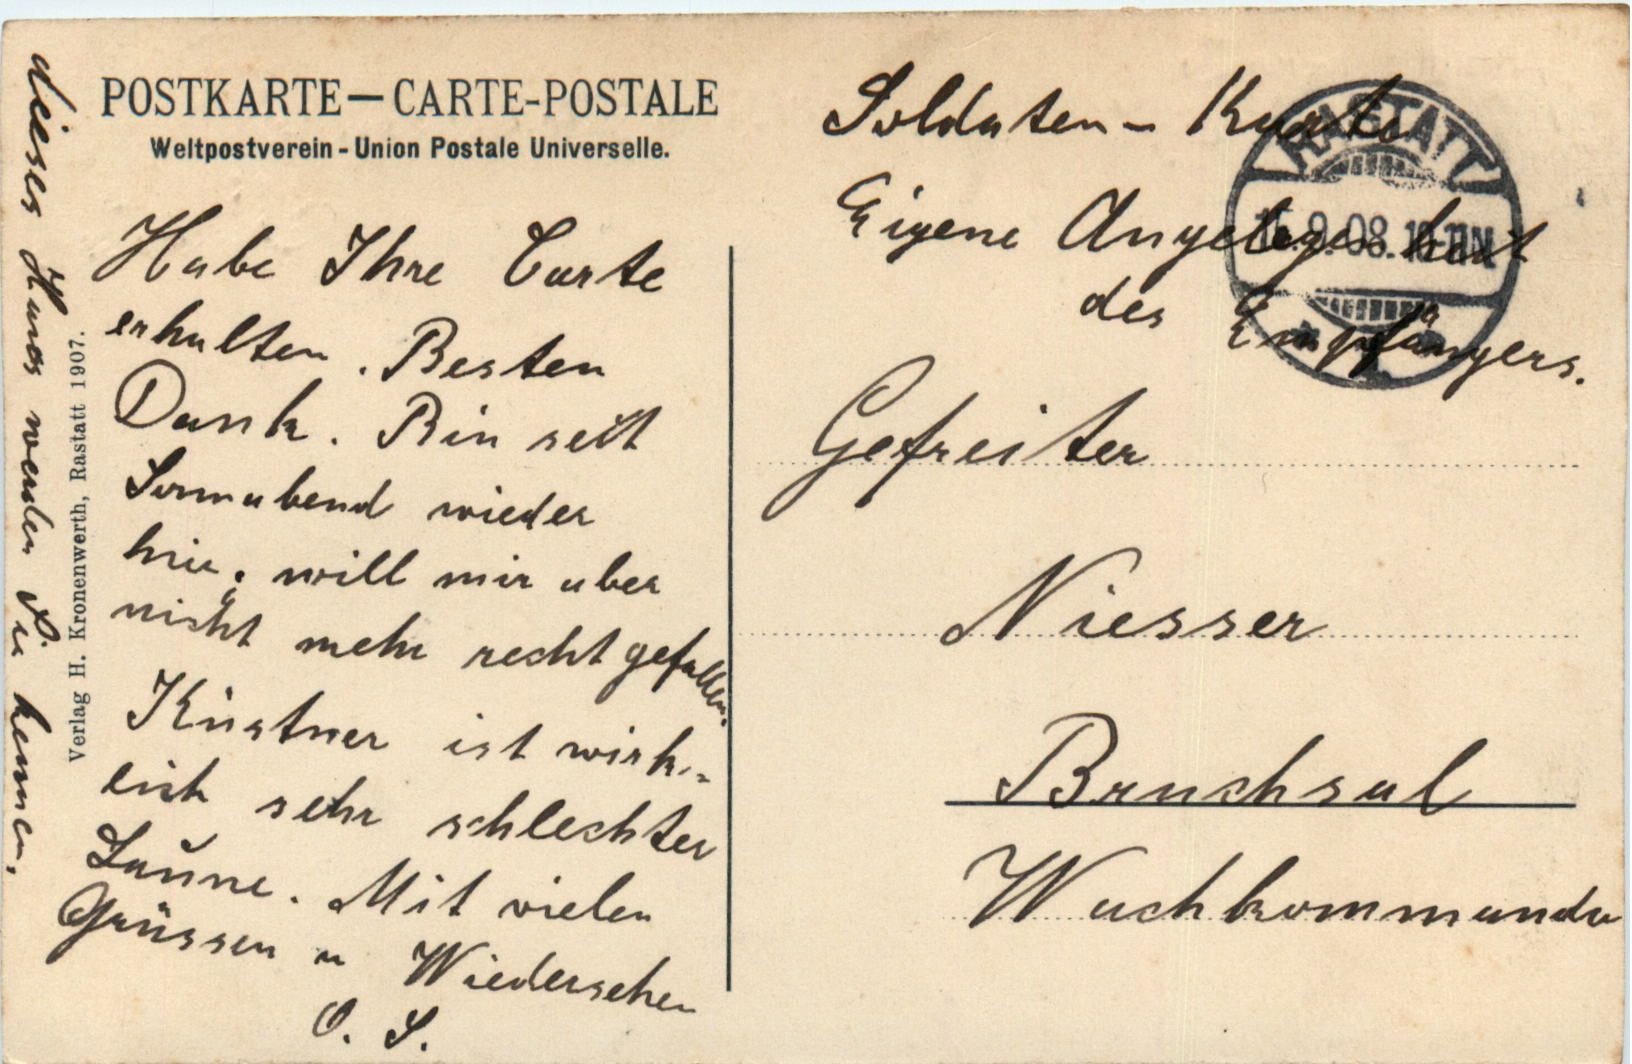 POSTKARTE — CARTE-POSTALE
Weltpostverein - Union Postale Universelle.
Habe Ihre Carte
erhalten. Besten
Dank. Bin seit
Sonnabend wieder
hier, will mir aber
nicht mehr recht gefallen.
Küstner ist wirk-
lich sehr schlechter
Laune. Mit vielen
Grüssen u Wiedersehen
O. S.
dieses Haus werden Sie kennen.
Verlag H. Kronenwerth, Rastatt 1907.
Soldaten - Karte
Eigene Angelegenheit
des Empfängers.
RASTATT
9.08. 10-11N
Gefreiter
Niesser
Bruchsal
Wachkommando